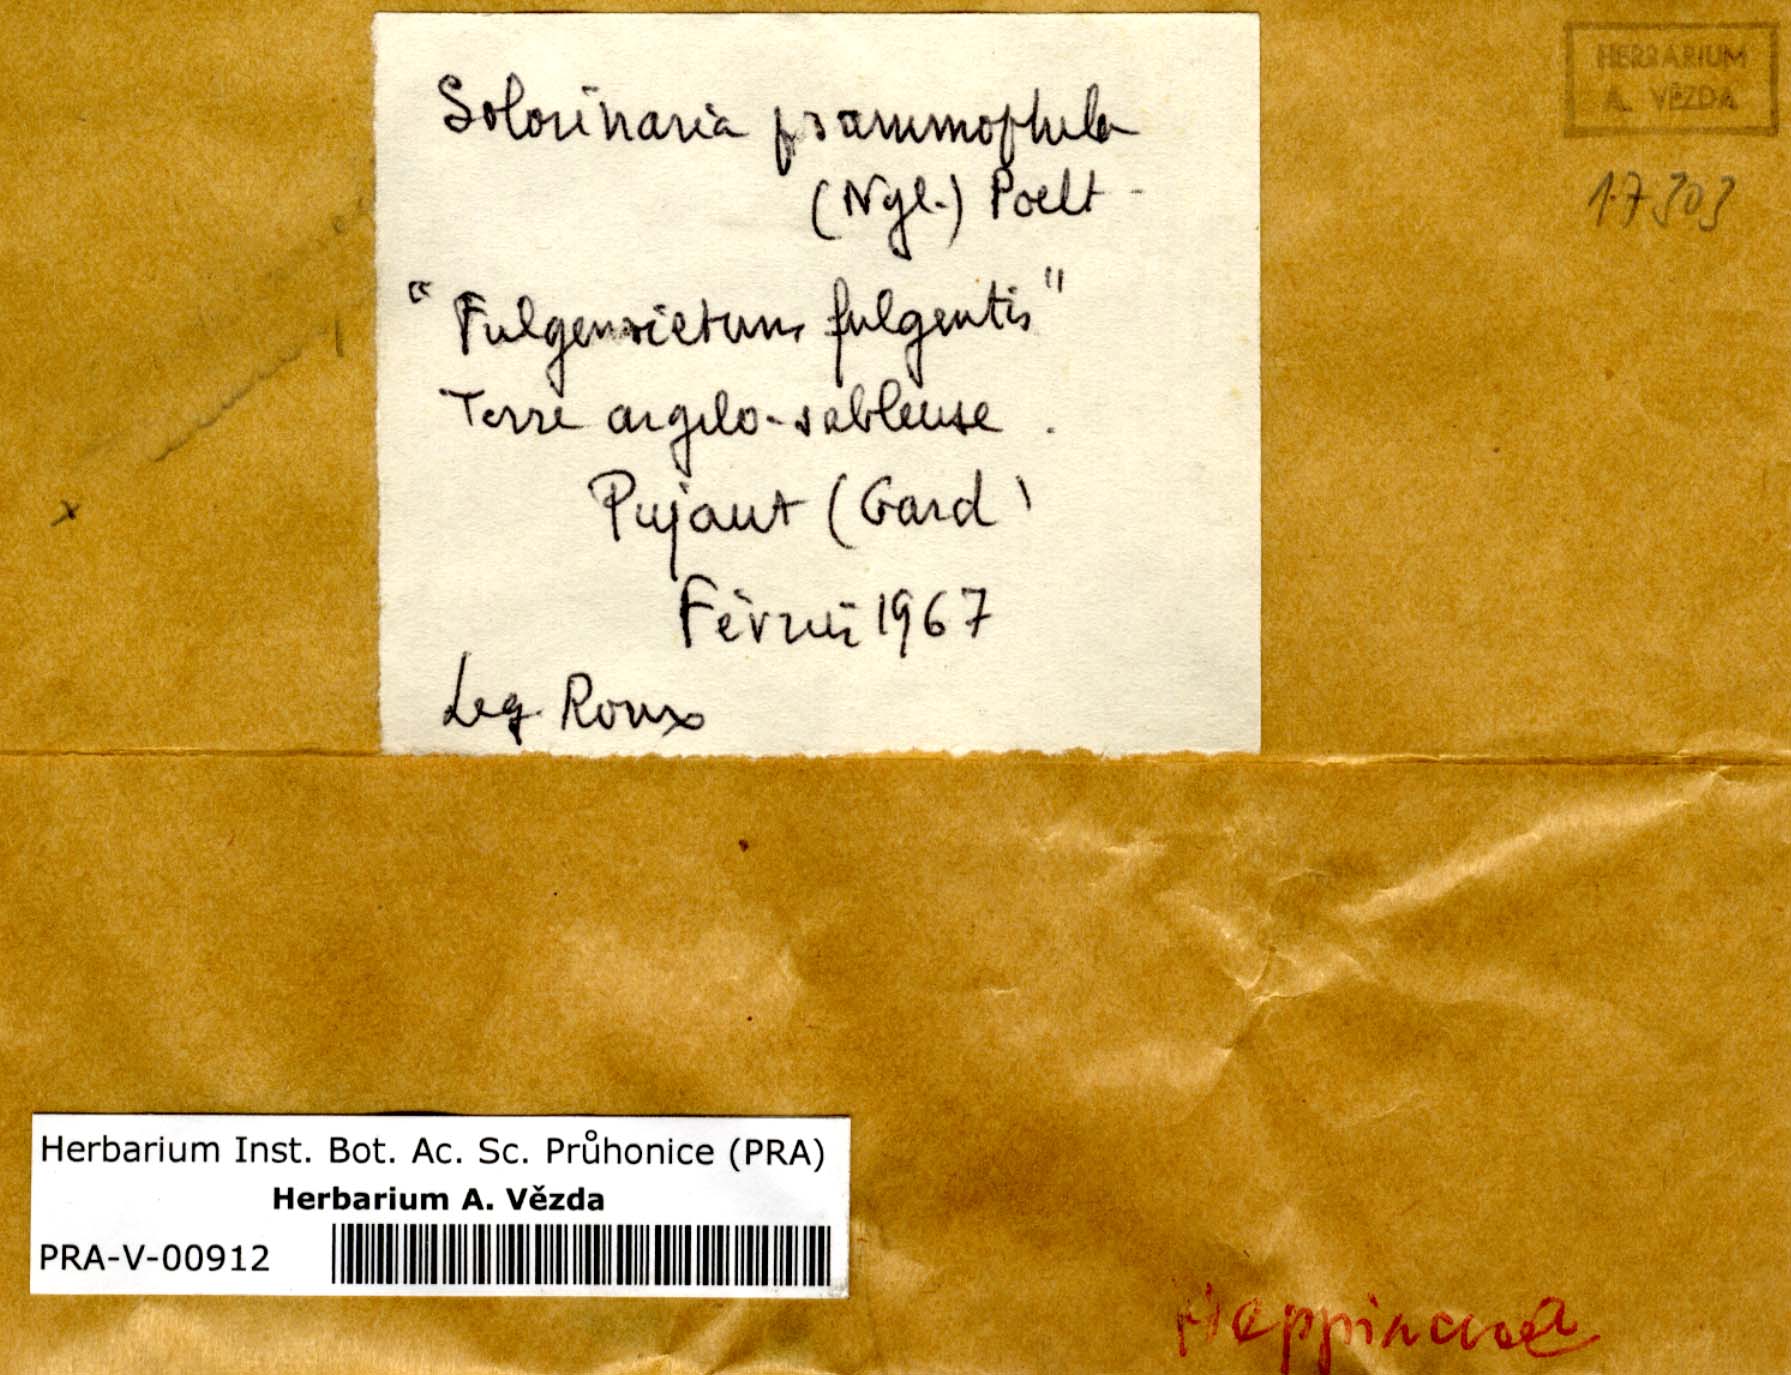 Solorinaria psammophila
(Nyl.) Poelt -
"Fulgensietum fulgentis"
Terre argilo-sableuse.
Pujaut (Gard)
Février 1967
Leg. Roux
HERBARIUM
A. VĚZDA
17303
x
Herbarium Inst. Bot. Ac. Sc. Průhonice (PRA)
Herbarium A. Vězda
PRA-V-00912
Heppiaceae